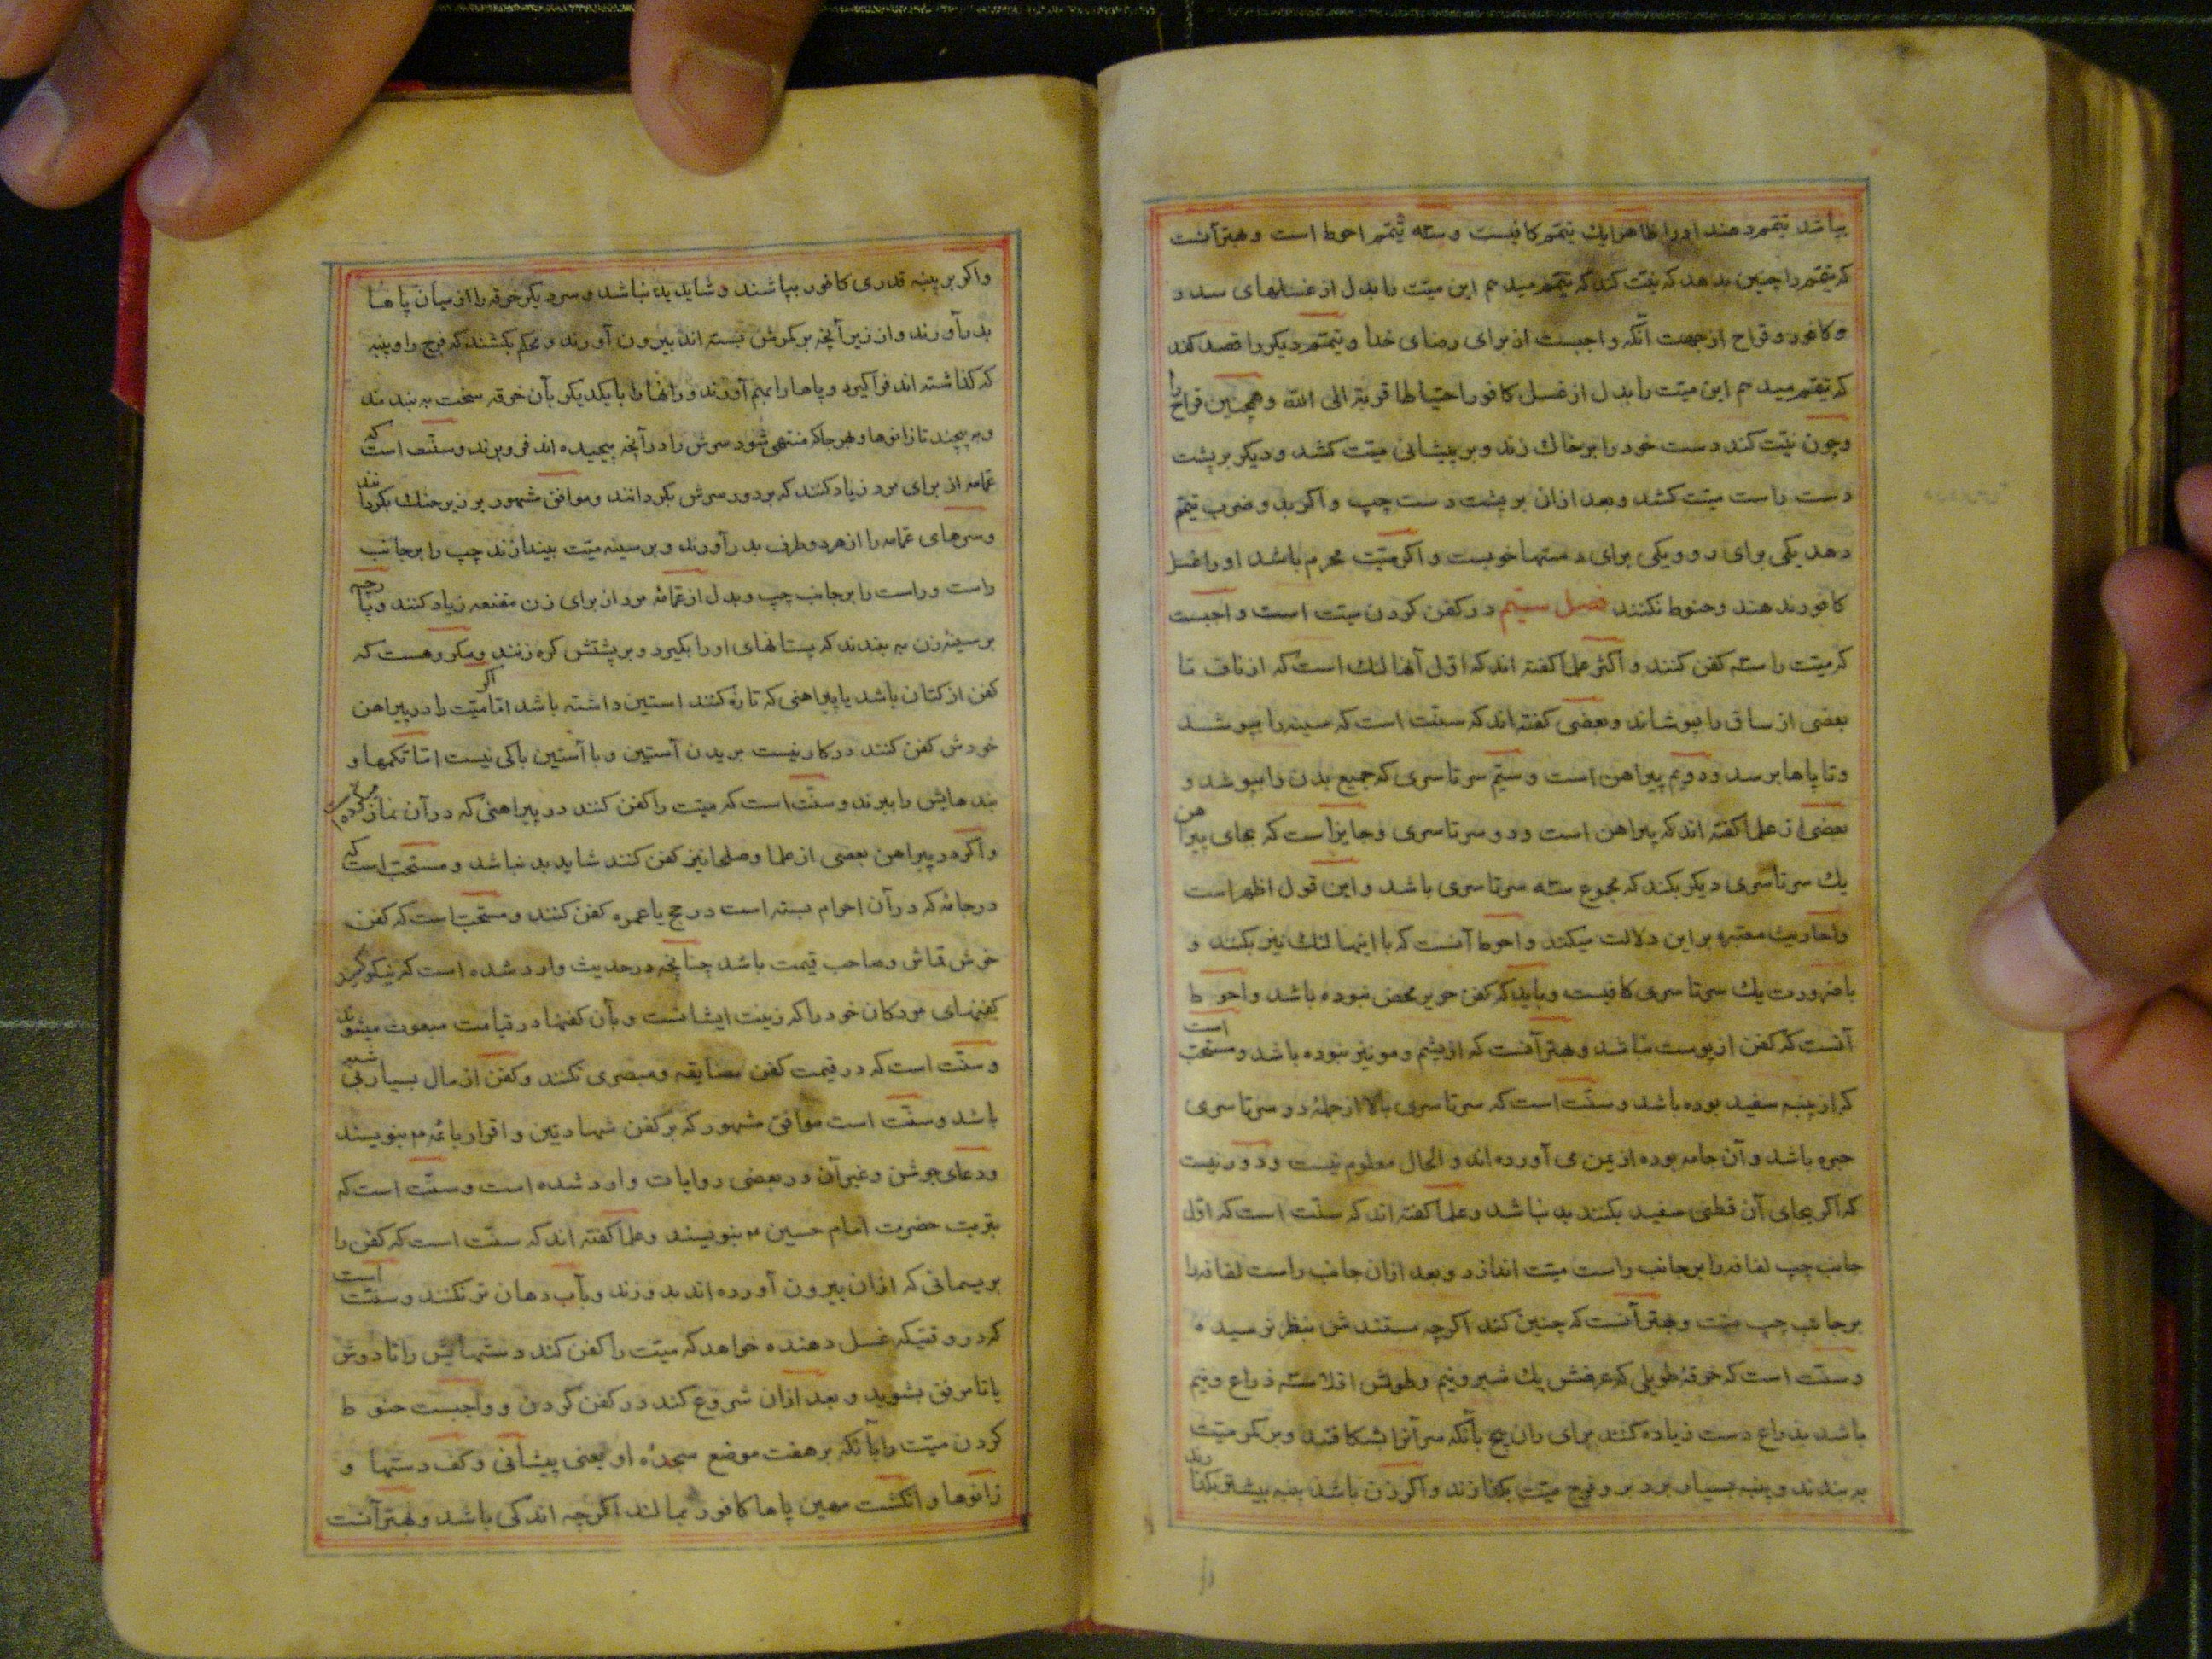 بپاشد تیمّم دهند او را ظاهرا یك تیمّم کافیست و سه تیمّم احوط است و بهتر آنست
که تیمّم را چنین بدهد که نیّت کند که تیمّم میدهم این میّت را بدل از غسلهای سدر و
و کافور و قراح از جهت آنکه واجبست از برای رضای خدا و تیمّم دیکر را قصد کند
که تیمّم میدهم این میّت را بدل از غسل کافور احتیاطا قربة الی الله و همچنین قراح را
و چون نیّت کند دست خود را بر خاك زند و بر پیشانی میّت کشد و دیکر بر پشت
دست راست میّت کشد و بعد ازان بر پشت دست چپ و اکر بدو ضرب تیمّم
دهد یکی برای رو و یکی برای دستها خوبست و اکر میّت محرم باشد او را غسل
کافور ندهند و حنوط نکنند فصل سیّم در کفن کردن میّت است واجبست
که میّت را سه کفن کنند و اکثر علما کفته اند که اوّل آنها لنك است که از ناف تا
بعضی از ساق را بپوشاند و بعضی کفته اند که سنّت است که سینه را بپوشد
و تا پاها برسد و دویّم پیراهن است و سیّم سرتاسری که جمیع بدن را بپوشد و
بعضی از علما کفته اند که پیراهن است و دو سرتاسری و جایز است که بجای پیراهن
یك سرتاسری دیکر بکند که مجموع سه سرتاسری باشد و این قول اظهر است
و احادیث معتبره بر این دلالت میکند و احوط آنست که با اینها لنك نیز بکنند و
با ضرورت یك سرتاسری کافیست و باید که کفن حریر محض نبوده باشد و احوط
آنست که کفن از پوست نباشد و بهتر آنست که از پشم و مو نیز نبوده باشد و مستحبّ است
که از پنبه سفید بوده باشد و سنّت است که سرتاسری بالا از جملهٔ دو سرتاسری
حبره باشد و آن جامه بوده از یمن می آورده اند و الحال معلوم نیست و دور نیست
که اکر بجای آن قطنی سفید بکنند بد نباشد و علما کفته اند که سنّت است که اوّل
جانب چپ لفافه را بر جانب راست میّت اندازد و بعد ازان جانب راست لفافه را
بر جانب چپ میّت و بهتر آنست که چنین کند اکرچه مستندش بنظر نرسیده
و سنّت است که خرقهٔ طویلی که عرضش یك شبر و نیم و طولش اقلا سه ذراع و نیم
باشد بذراع دست زیاده کنند برای ران پیچ بآنکه سر آنرا بشکافند و بر کمر میّت
به بندند و پنبه بسیار برد بر و فرج میّت بکذارند و اکر زن باشد پنبه بیشتر بکذارند
و اکر بر پنبه قدری کافور بپاشند و شاید بد نباشد و سر دیکر خرقه را از میان پاها
بدر آورند و از زیر آنچه بر کمرش بسته اند بیرون آورند و محکم بکشند که فرج را و پنبه
که کذاشته اند فرا کیرد و پاها را بهم آورند و رانها را با یکدیکر بآن خرقه سخت به بندند
و به پیچند تا زانوها و بهر جا که منتهی شود سرش را در آنچه پیچیده اند فرو برند و سنّت است که
عمامه از برای مرد زیاد کنند که بر دور سرش بکردانند و موافق مشهور بر زیر حنك بکردانند
و سرهای عمامه را از هر دو طرف بدر آورند و بر سینه میّت بیندازند چپ را بر جانب
راست و راست را بر جانب چپ و بدل از عمّامهٔ مرد از برای زن مقنعه زیاد کنند و پارچه
بر سینهٔ زن به بندند که پستانهای او را بکیرد و بر پشتش کره زنند و مکروهست که
کفن از کتان باشد یا پیراهنی که تازه کنند استین داشته باشد امّا اکر میّت را در پیراهن
خودش کفن کنند در کار نیست بریدن آستین و با آستین باکی نیست امّا تکمها و
بندهایش را ببرند و سنّت است که میّت را کفن کنند در پیراهنی که در آن نماز کرده است
و اکر در پیراهن بعضی از علما و صلحا نیز کفن کنند شاید بد نباشد و مستحبّ است که
در جامهٔ که در آن احرام بسته است در حج یا عمره کفن کنند و مستحبّ است که کفن
خوش قماش و صاحب قیمت باشد چنانچه در حدیث وارد شده است که نیکو کنید
کفنهای مردکان خود را که زینت ایشانست و بآن کفنها در قیامت مبعوث میشوند
و سنّت است که در قیمت کفن مضایقه و مبصری نکنند و کفن از مال بسیار بی شبهه
باشد و سنّت است موافق مشهور که بر کفن شهادتین و اقرار بائمه ع بنویسند
و دعای جوشن و غیر آن در بعضی روایات وارد شده است و سنّت است که
بتربت حضرت امام حسین ع بنویسند و علما کفته اند که سنّت است که کفن را
بریسمانی که ازان بیرون آورده اند بدوزند و بآب دهان تر نکنند و سنّت است
که در وقتیکه غسل دهنده خواهد که میّت را کفن کند دستهایش را تا دوش
یا تا مرفق بشوید و بعد ازان شروع کند در کفن کردن و واجبست حنوط
کردن میّت را بآنکه بر هفت موضع سجدهٔ او یعنی پیشانی و کف دستها و
زانوها و انکشت مهین پاها کافور بمالند اکرچه اندکی باشد و بهتر آنست